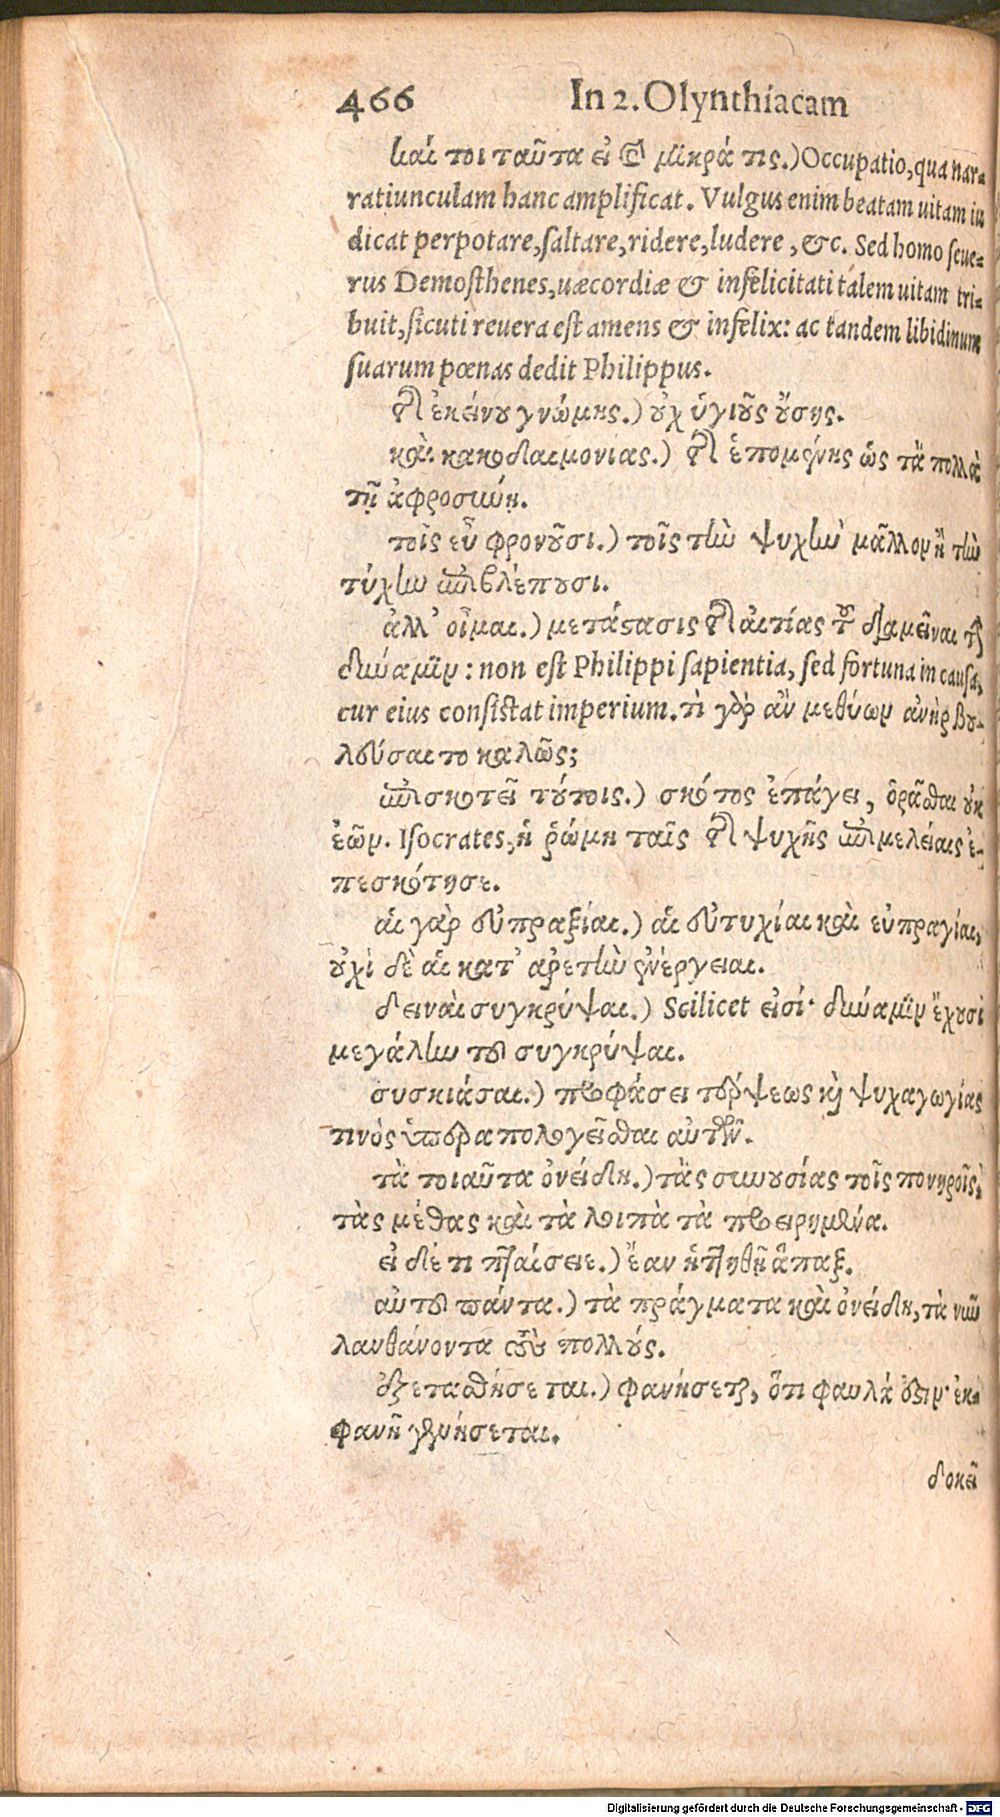 466 In 2. Olynthiacam
καί τοι ταῦτα εἰ καὶ μικρά τις.) Occupatio, qua nar-
ratiunculam hanc amplificat. Vulgus enim beatam uitam iu
dicat perpotare, saltare, ridere, ludere, &c. Sed homo seue-
rus Demosthenes, uæcordiæ & infelicitati talem uitam tri-
buit, sicuti reuera est amens & infelix: ac tandem libidinum
suarum pœnas dedit Philippus.
τῆς ἐκείνου γνώμης.) οὐχ ὑγιοῦς οὔσης.
καὶ κακοδαιμονίας.) τῆς ἑπομένης ὡς τὰ πολλὰ
τῇ ἀφροσύνῃ.
τοῖς εὖ φρονοῦσι.) τοῖς τὴν ψυχὴν μᾶλλον ἢ τὴν
τύχην ἐπιβλέπουσι.
ἀλλ' οἶμαι.) μετάστασις τῆς αἰτίας τοῦ διαμεῖναι τὴν
δύναμιν: non est Philippi sapientia, sed fortuna in causa,
cur eius consistat imperium. τὶ γὰρ ἂν μεθύων ἀνὴρ βου-
λεύσαιτο καλῶς;
ἐπισκοτεῖ τούτοις.) σκότος ἐπάγει, ὁρᾶσθαι οὐκ
ἐῶν. Isocrates, ἡ ῥώμη ταῖς τῆς ψυχῆς ἐπιμελείαις ἐ-
πεσκότησε.
αἱ γὰρ εὐπραξίαι.) αἱ εὐτυχίαι καὶ εὐπραγίαι,
οὐχὶ δὲ αἱ κατ' ἀρετὴν ἐνέργειαι.
δειναὶ συγκρύψαι.) Scilicet εἰσί· δύναμιν ἔχουσι
μεγάλην τοῦ συγκρύψαι.
συσκιάσαι.) προφάσει τέρψεως καὶ ψυχαγωγίας
τινὸς ὑπεραπολογεῖσθαι αὐτῶν.
τὰ τοιαῦτα ὀνείδη.) τὰς συνουσίας τοῖς πονηροῖς,
τὰς μέθας καὶ τὰ λοιπὰ τὰ προειρημένα.
εἰ δέ τι πταίσειε.) ἔαν ἡττηθῇ ἅπαξ.
αὐτοῦ πάντα.) τὰ πράγματα καὶ ὀνείδη, τὰ νῦν
λανθάνοντα τοὺς πολλούς.
ἐξετασθήσεται.) φανήσεται, ὅτι φαυλά ἐστιν· ἐκ-
φανῆ γενήσεται.
δοκεῖ
Digitalisierung gefördert durch die Deutsche Forschungsgemeinschaft - DFG